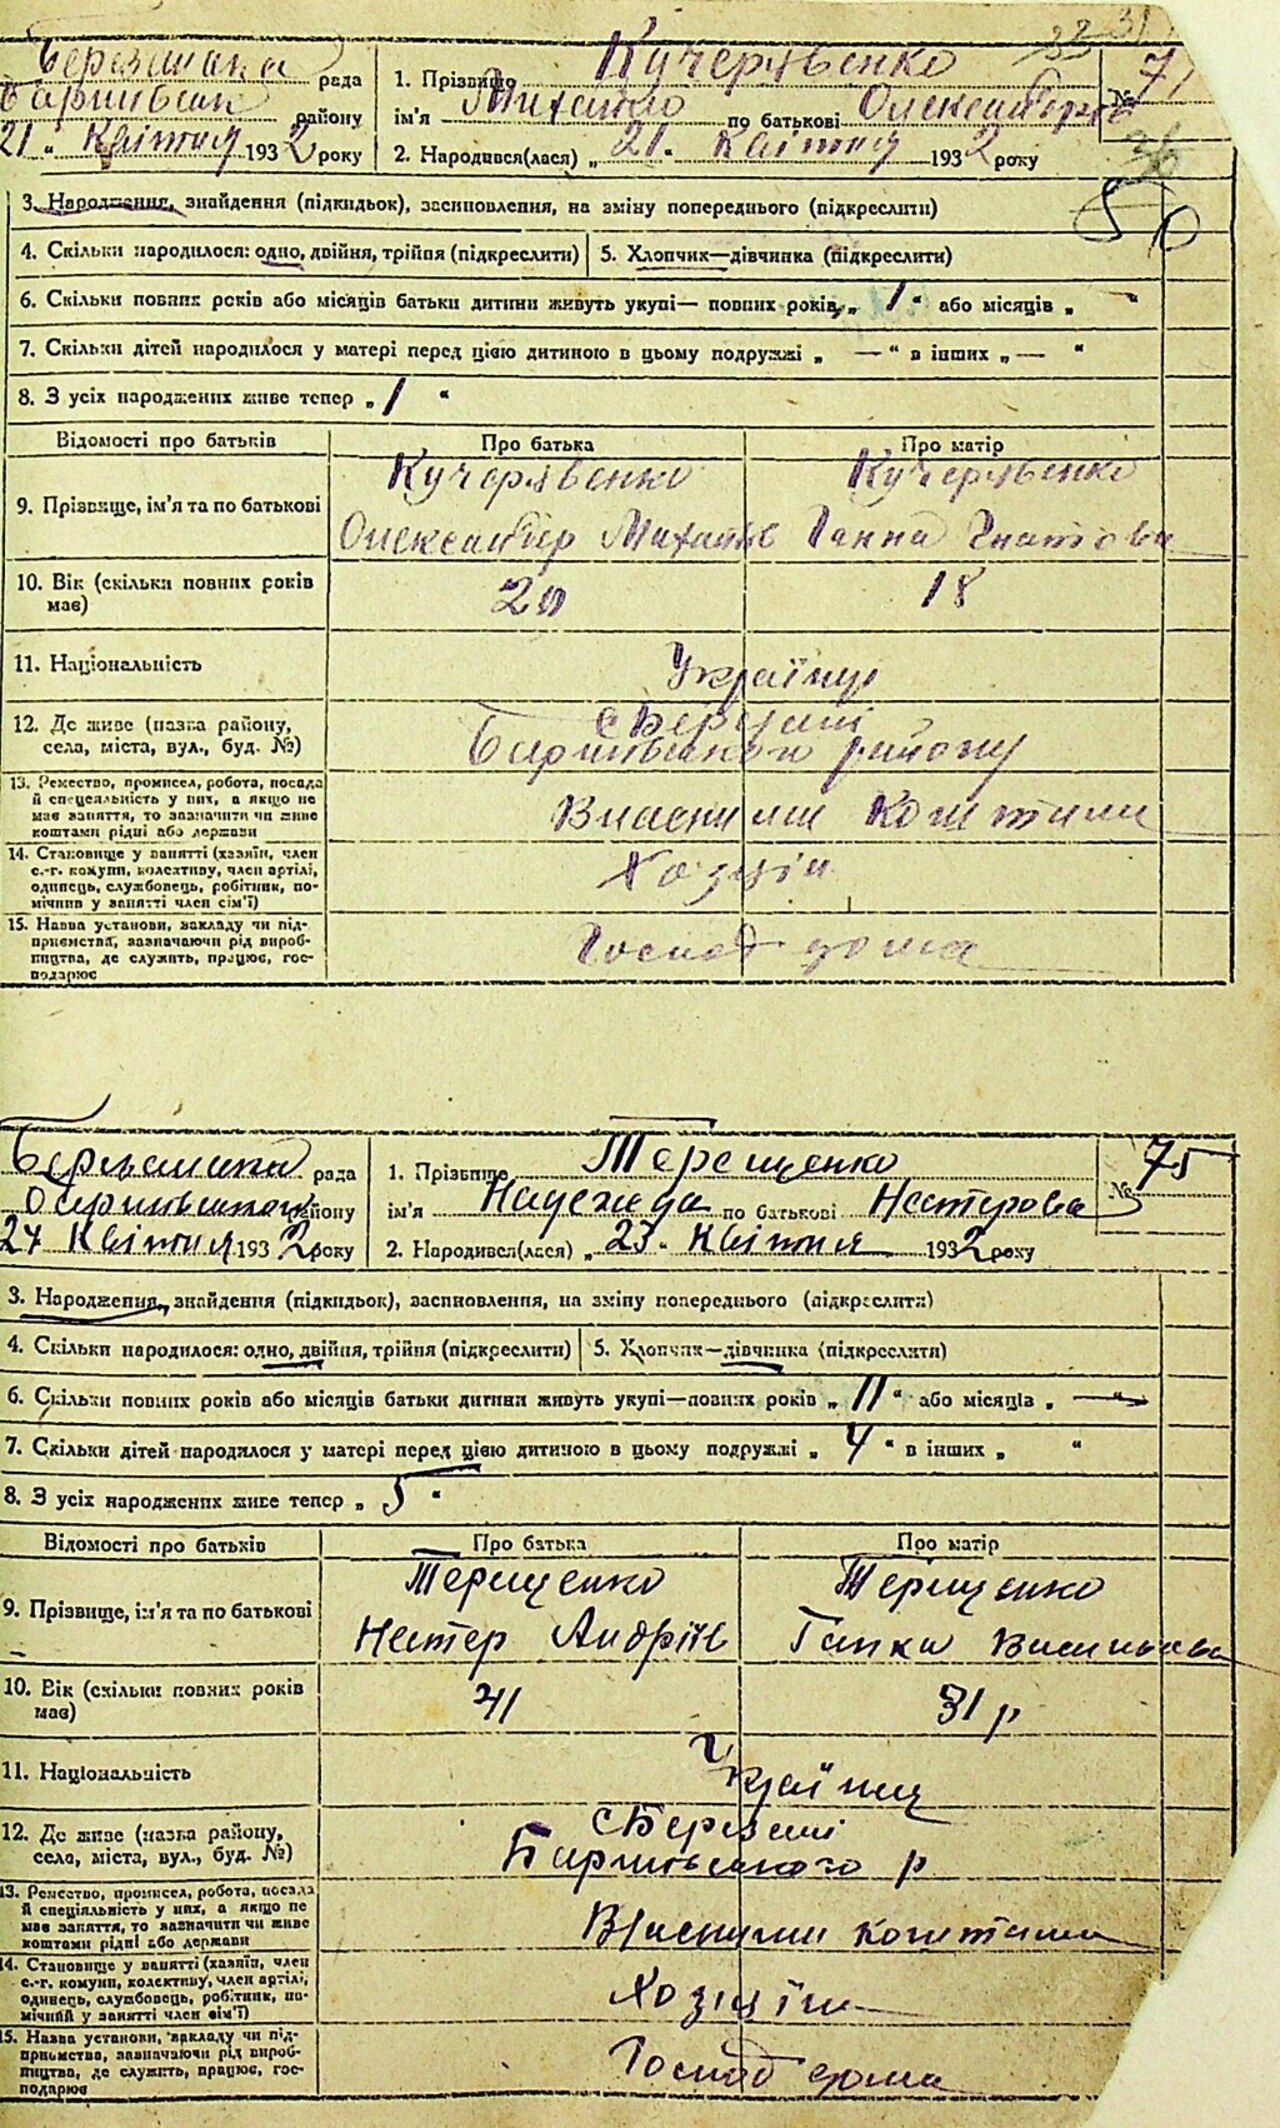 33 31
Березанска рада
Баришевськ району
21 " Квітня 1932 року
1. Прізвище Кучерявенко
ім'я Михайло по батькові Олександров
2. Народився(лася) „ 21 " Квітня 1932 року
№ 71
36
3. Народження, знайдення (підкидьок), засиновлення, на зміну попереднього (підкреслити)
4. Скільки народилося: одно, двійня, трійня (підкреслити)
5. Хлопчик—дівчинка (підкреслити)
6. Скільки повних років або місяців батьки дитини живуть укупі— повних років „ 1 " або місяців „ "
7. Скільки дітей народилося у матері перед цією дитиною в цьому подружжі „ — " в інших „ — "
8. З усіх народжених живе тепер „ 1 "
Відомості про батьків Про батька Про матір
9. Прізвище, ім'я та по батькові
Кучерявенко
Олександер Михайлів
Кучерявенко
Ганна Гнатова
10. Вік (скільки повних років
має)
20 18
11. Національність Українці
12. Де живе (назва району,
села, міста, вул., буд. №)
с Березані
Баришевського району
13. Ремество, промисел, робота, посада
й спеціяльність у них, а якщо не
має заняття, то зазначити чи живе
коштами рідні або держави
Власними коштами
14. Становище у занятті (хазяїн, член
с.-г. комуни, колективу, член артілі,
одинець, службовець, робітник, по-
мічник у занятті член сім'ї)
Хозяїн
15. Назва установи, закладу чи під-
приємства, зазначаючи рід вироб-
ництва, де служить, працює, гос-
подарює
Господ дома
Березанска рада
Баришевськог району
24 Квітня 1932 року
1. Прізвище Терещенко
ім'я Надежда по батькові Нестерова
2. Народився(лася) „ 23 " Квітня 1932 року
№ 75
3. Народження, знайдення (підкидьок), засиновлення, на зміну попереднього (підкреслити)
4. Скільки народилося: одно, двійня, трійня (підкреслити)
5. Хлопчик—дівчинка (підкреслити)
6. Скільки повних років або місяців батьки дитини живуть укупі—повних років „ 11 " або місяців „ — "
7. Скільки дітей народилося у матері перед цією дитиною в цьому подружжі „ 4 " в інших „ "
8. З усіх народжених живе тепер „ 5 "
Відомості про батьків Про батька Про матір
9. Прізвище, ім'я та по батькові
Терещенко
Нестер Андріїв
Терещенко
Ганна Васильова
10. Вік (скільки повних років
має)
31 р
11. Національність Українці
12. Де живе (назва району,
села, міста, вул., буд. №)
с Березані
Баришевського р
13. Ремество, промисел, робота, посада
й спеціяльність у них, а якщо не
має заняття, то зазначити чи живе
коштами рідні або держави
Власними коштами
14. Становище у занятті (хазяїн, член
с.-г. комуни, колективу, член артілі,
одинець, службовець, робітник, по-
мічний у занятті член сім'ї)
Хозяїн
15. Назва установи, закладу чи під-
приємства, зазначаючи рід вироб-
ництва, де служить, працює, гос-
подарює
Господ дома